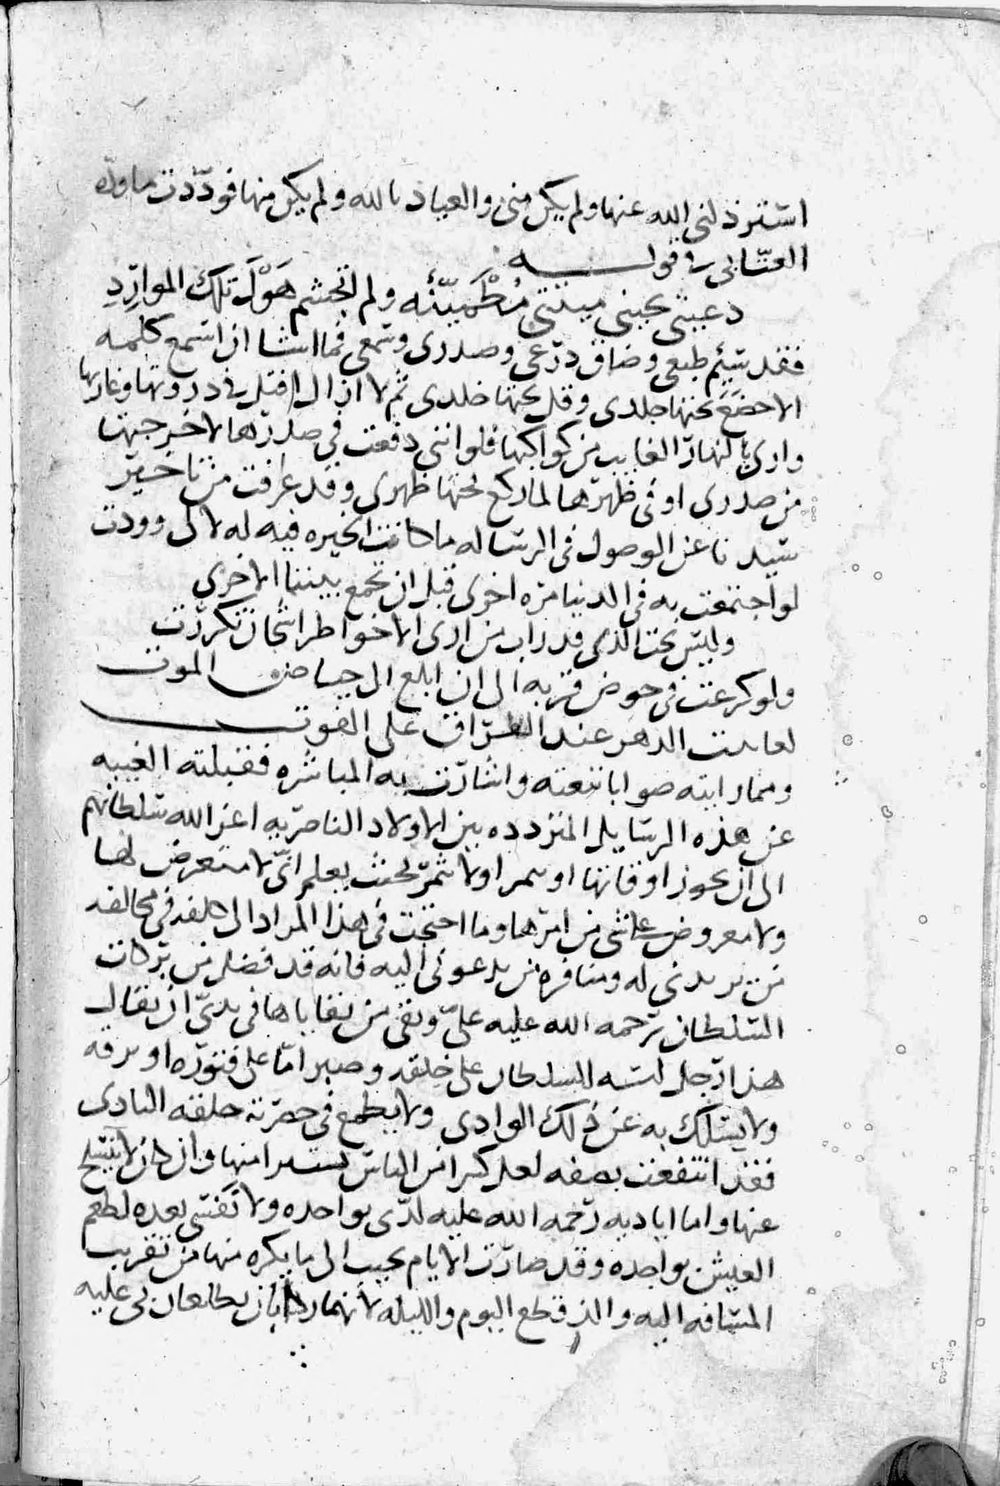 استرذلنى الله عنها ولم يكن منى والعياذ بالله ولم يكن منها فوددت ما وده
العتابى فى قوله
دعينى تجينى ميتتى مطمئنه ولم اتجشم هول تلك الموارد
فقد سئم طبعى وضاق درعى وصدرى وسمعى فما اشا ان اسمع كلمه
الا خضع عنها جلدى وقل عنها خلدى ثم لا ازال افتل فى دروتها وغاربها
وارى بالنهار الغايب من كواكبها فلو اننى دفعت فى صدرها لاخرجتها
من صدرى او فى ظهرها لما ركع تحتها ظهرى وقد عرفت من تاخير
سيدنا عن الوصول فى الرساله ما كانت الخيره فيه له لا لى وودت
لو اجتمعت به فى الدنيا مره اخرى قبل ان تجمع بيننا الاخرى
وليس تحت الذى قد راب من ارى الا خواطر اشجان تكررت
ولو كرعت فى حوض قربه الى ان ابلغ الى حياض الموت
لعابت الدهر عند الفراق على الفوت
ومما رايته صوابا تتبعته واشارت به المباشره فقبلته الغيبه
عن هذه الرسايل المتردده بين الاولاد الناصريه اعز الله سلطانهم
الى ان يجوز اوقاتها او يمر اولا ثم بحيث يعلم انى لا متعرض لها
ولا معروض على شى من امرها وما احتجت فى هذا المراد الى كلفه فى مخالفه
من يريدنى له ومنافره من يدعونى اليه فانه قد فضل من بركات
السلطان رحمه الله عليه على وبقى من بقاياها فى يدى ان يقال
هذا رجل لبسه السلطان على خلقه وصبر اما على فتوره او نزقه
ولا يسلك به غير ذلك الوادى ولا يطمع فى حضرته حلقه النادى
فقد انتفعت بصفه لعل كثرا من الناس يستبرا منها وان كان لا ينسلخ
عنها واما اياديه رحمه الله عليه لدى بواحده ولا تفتى بعده لطعم
العيش بواجده وقد صارت الايام تحبب الى ما يكره منها من تقريب
المسافه اليه والذ قطع اليوم والليله لانهما ركابان يطلعان بى عليه